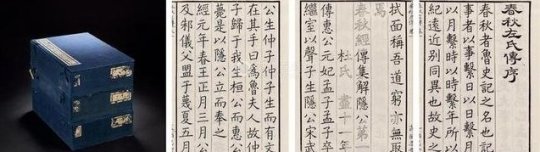 春秋左氏傳序
春秋者魯史記之名也記
事者以事繫日以日繫月
以月繫時以時繫年所以
紀遠近別同異也故史之
拭面稱吾道窮亦無取
焉
春秋經傳集解隱公第一
杜氏 盡十一年
傳惠公元妃孟子孟子卒
繼室以聲子生隱公宋武
公生仲子仲子生而有文
在其手曰為魯夫人故仲
子歸于我生桓公而惠公
薨是以隱公立而奉之
經元年春王正月三月公
及邾儀父盟于蔑夏五月